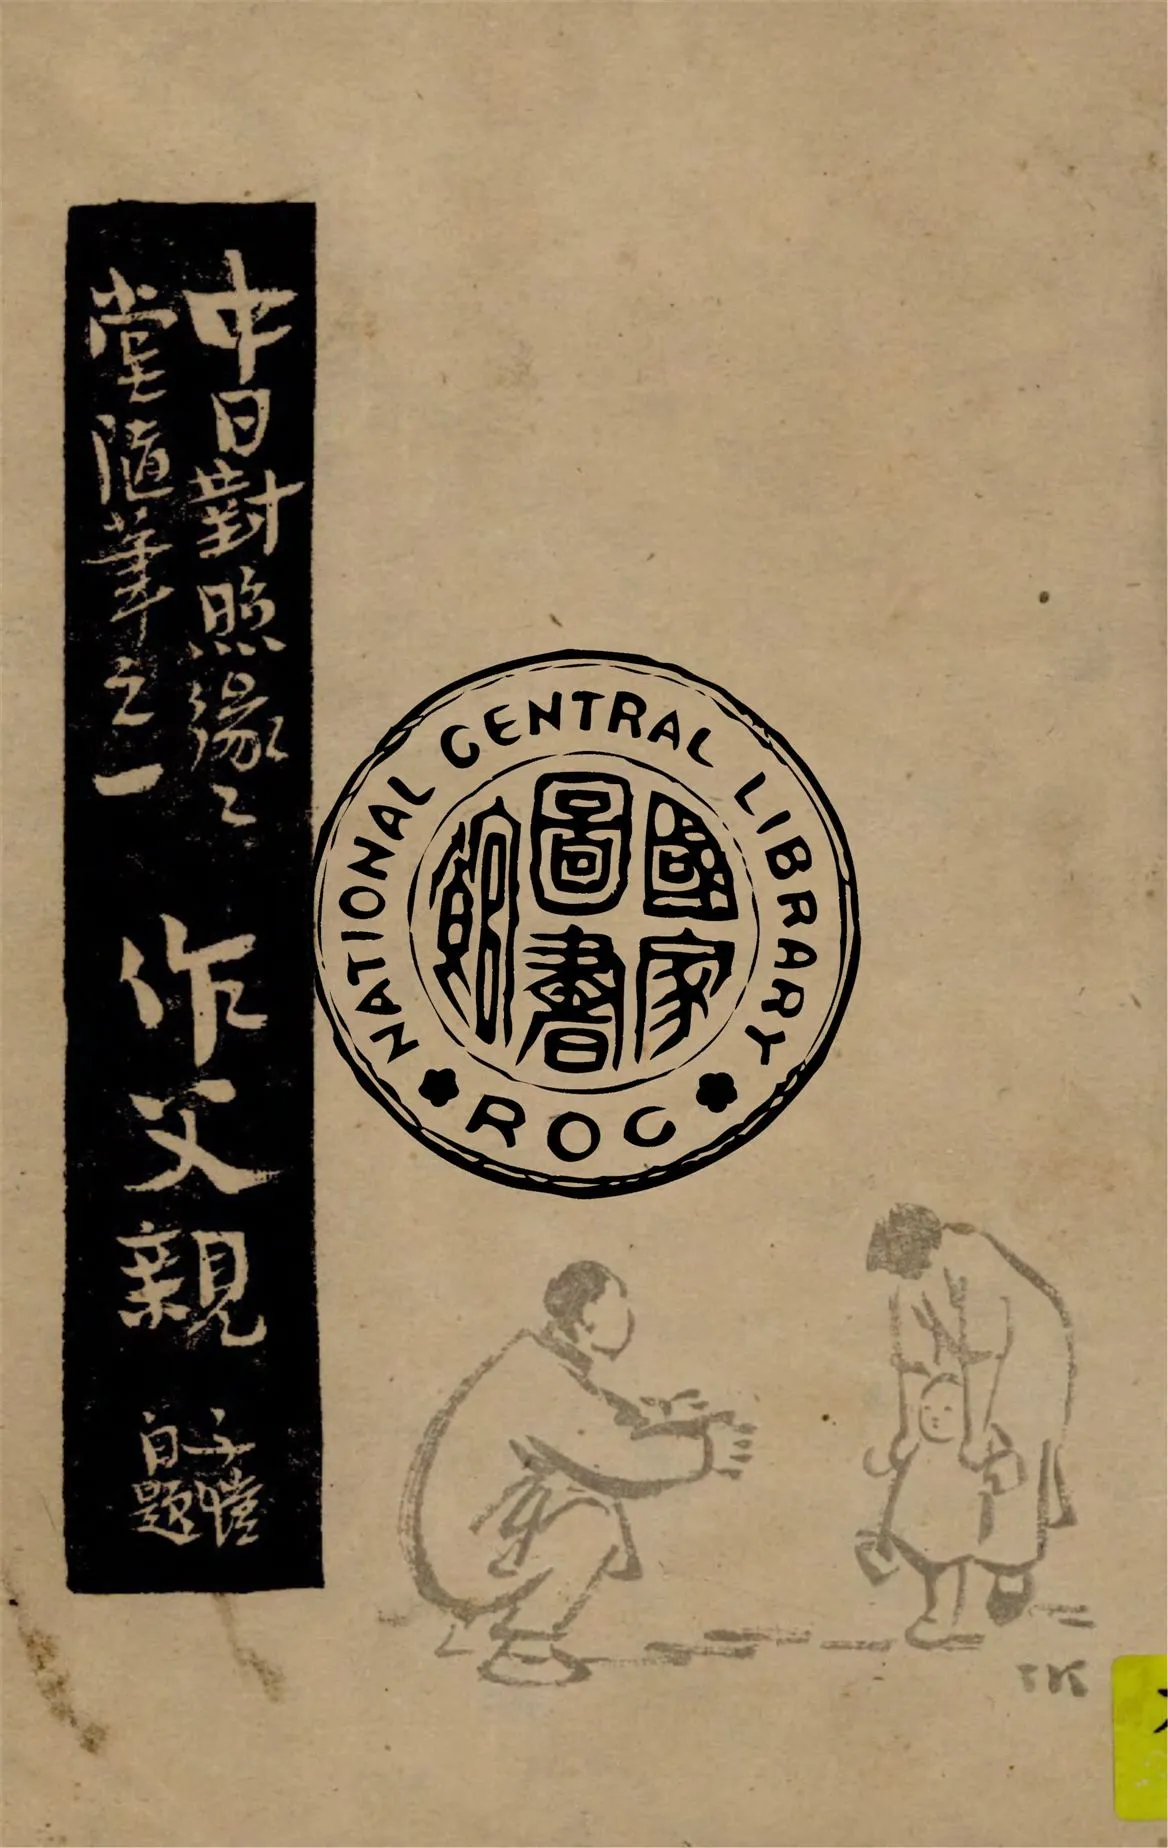 中日對照緣緣
堂隨筆之一
作父親
子愷
自題
NATIONAL CENTRAL LIBRARY
ROC
國家
圖書
館
TK